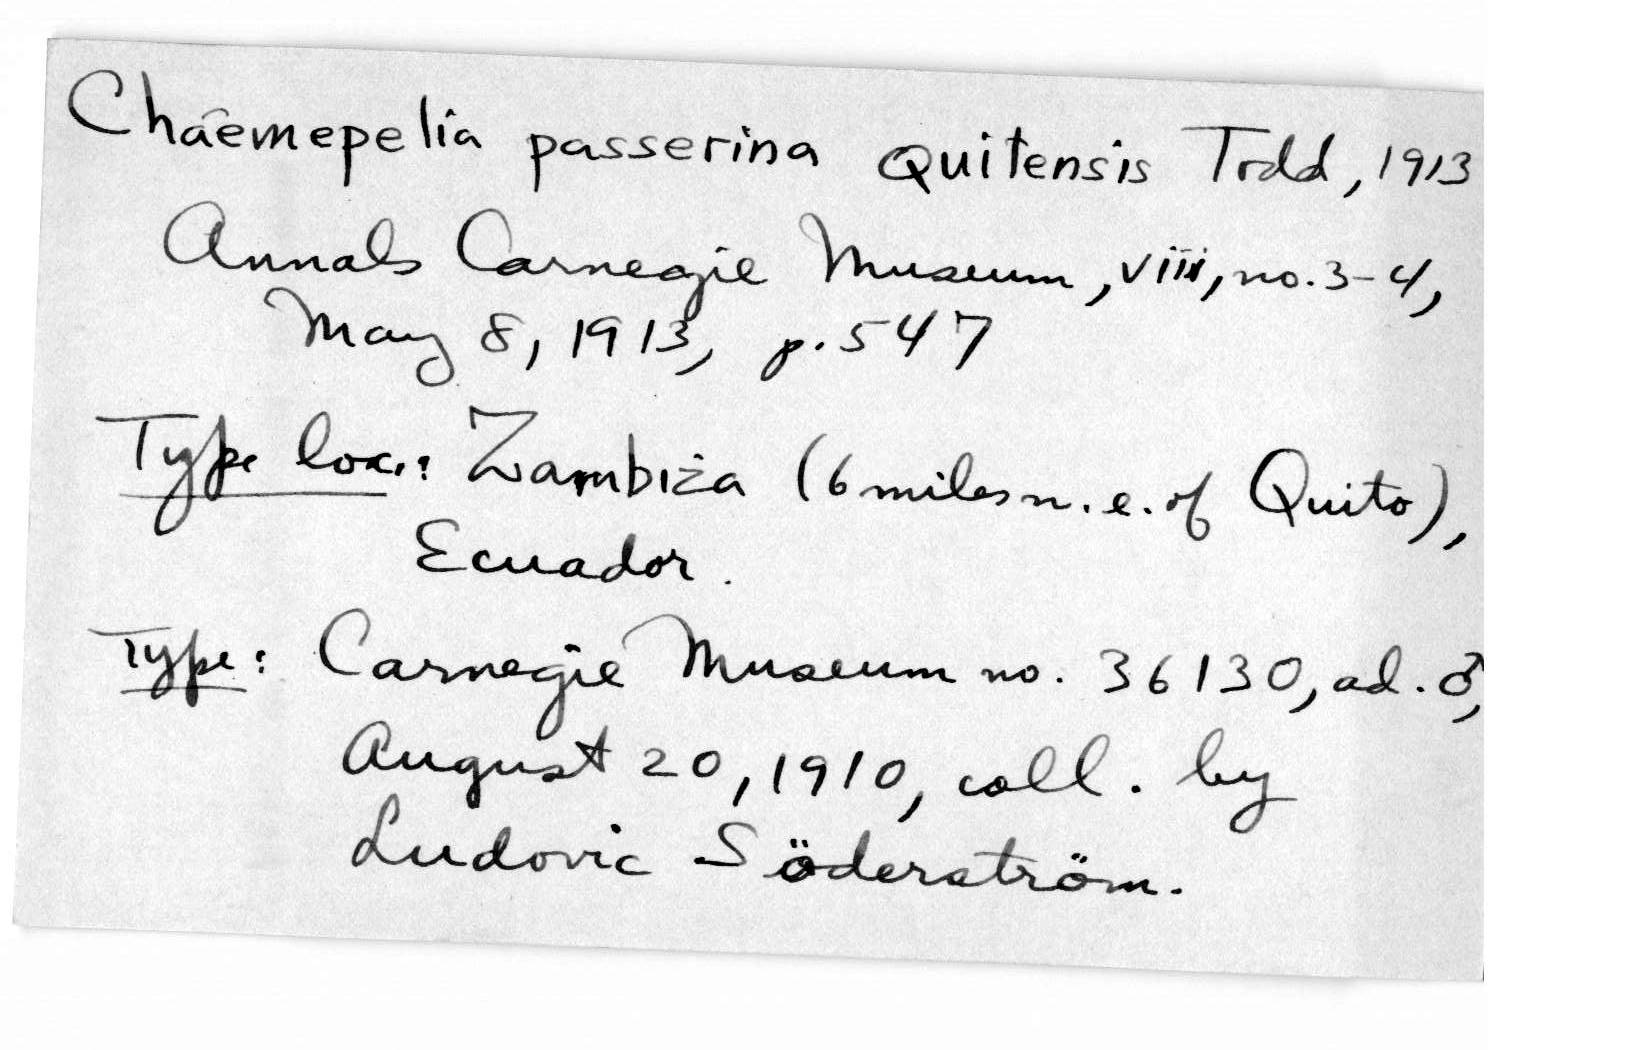 Chaemepelia passerina quitensis Todd, 1913
Annals Carnegie Museum, viii, no. 3-4,
May 8, 1913, p. 547
Type loc.: Zambiza (6 miles n.e. of Quito),
Ecuador.
Type: Carnegie Museum no. 36130, ad. ♂,
August 20, 1910, coll. by
Ludovic Söderström.